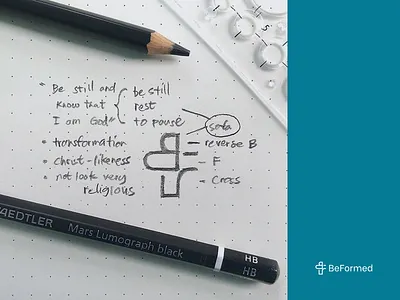 "Be still and
know that
I am God"
be still
rest
to pause
• transformation
• christ-likeness
• not look very
religious
reverse B
F
Cross
STAEDTLER
Mars Lumograph black
HB
HB
5
BeFormed